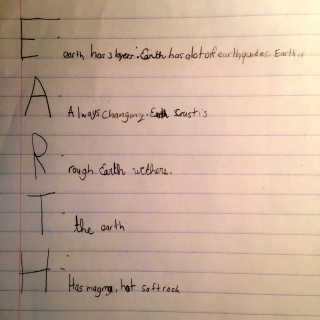 E
earth has 3 layers. Earth has alot of earthquakes. Earth
A
Always Changing. Earth Crust is
R
rough. Earth wethere.
T
the earth
H
Has magma, hot soft rock